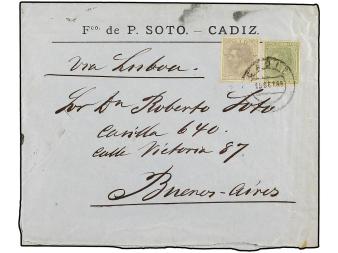 Fco. de P. SOTO. — CADIZ.
via Lisboa.
Sor Dn Roberto Soto
Casilla 640.
calle Victoria 87
Buenos-Aires
CADIZ